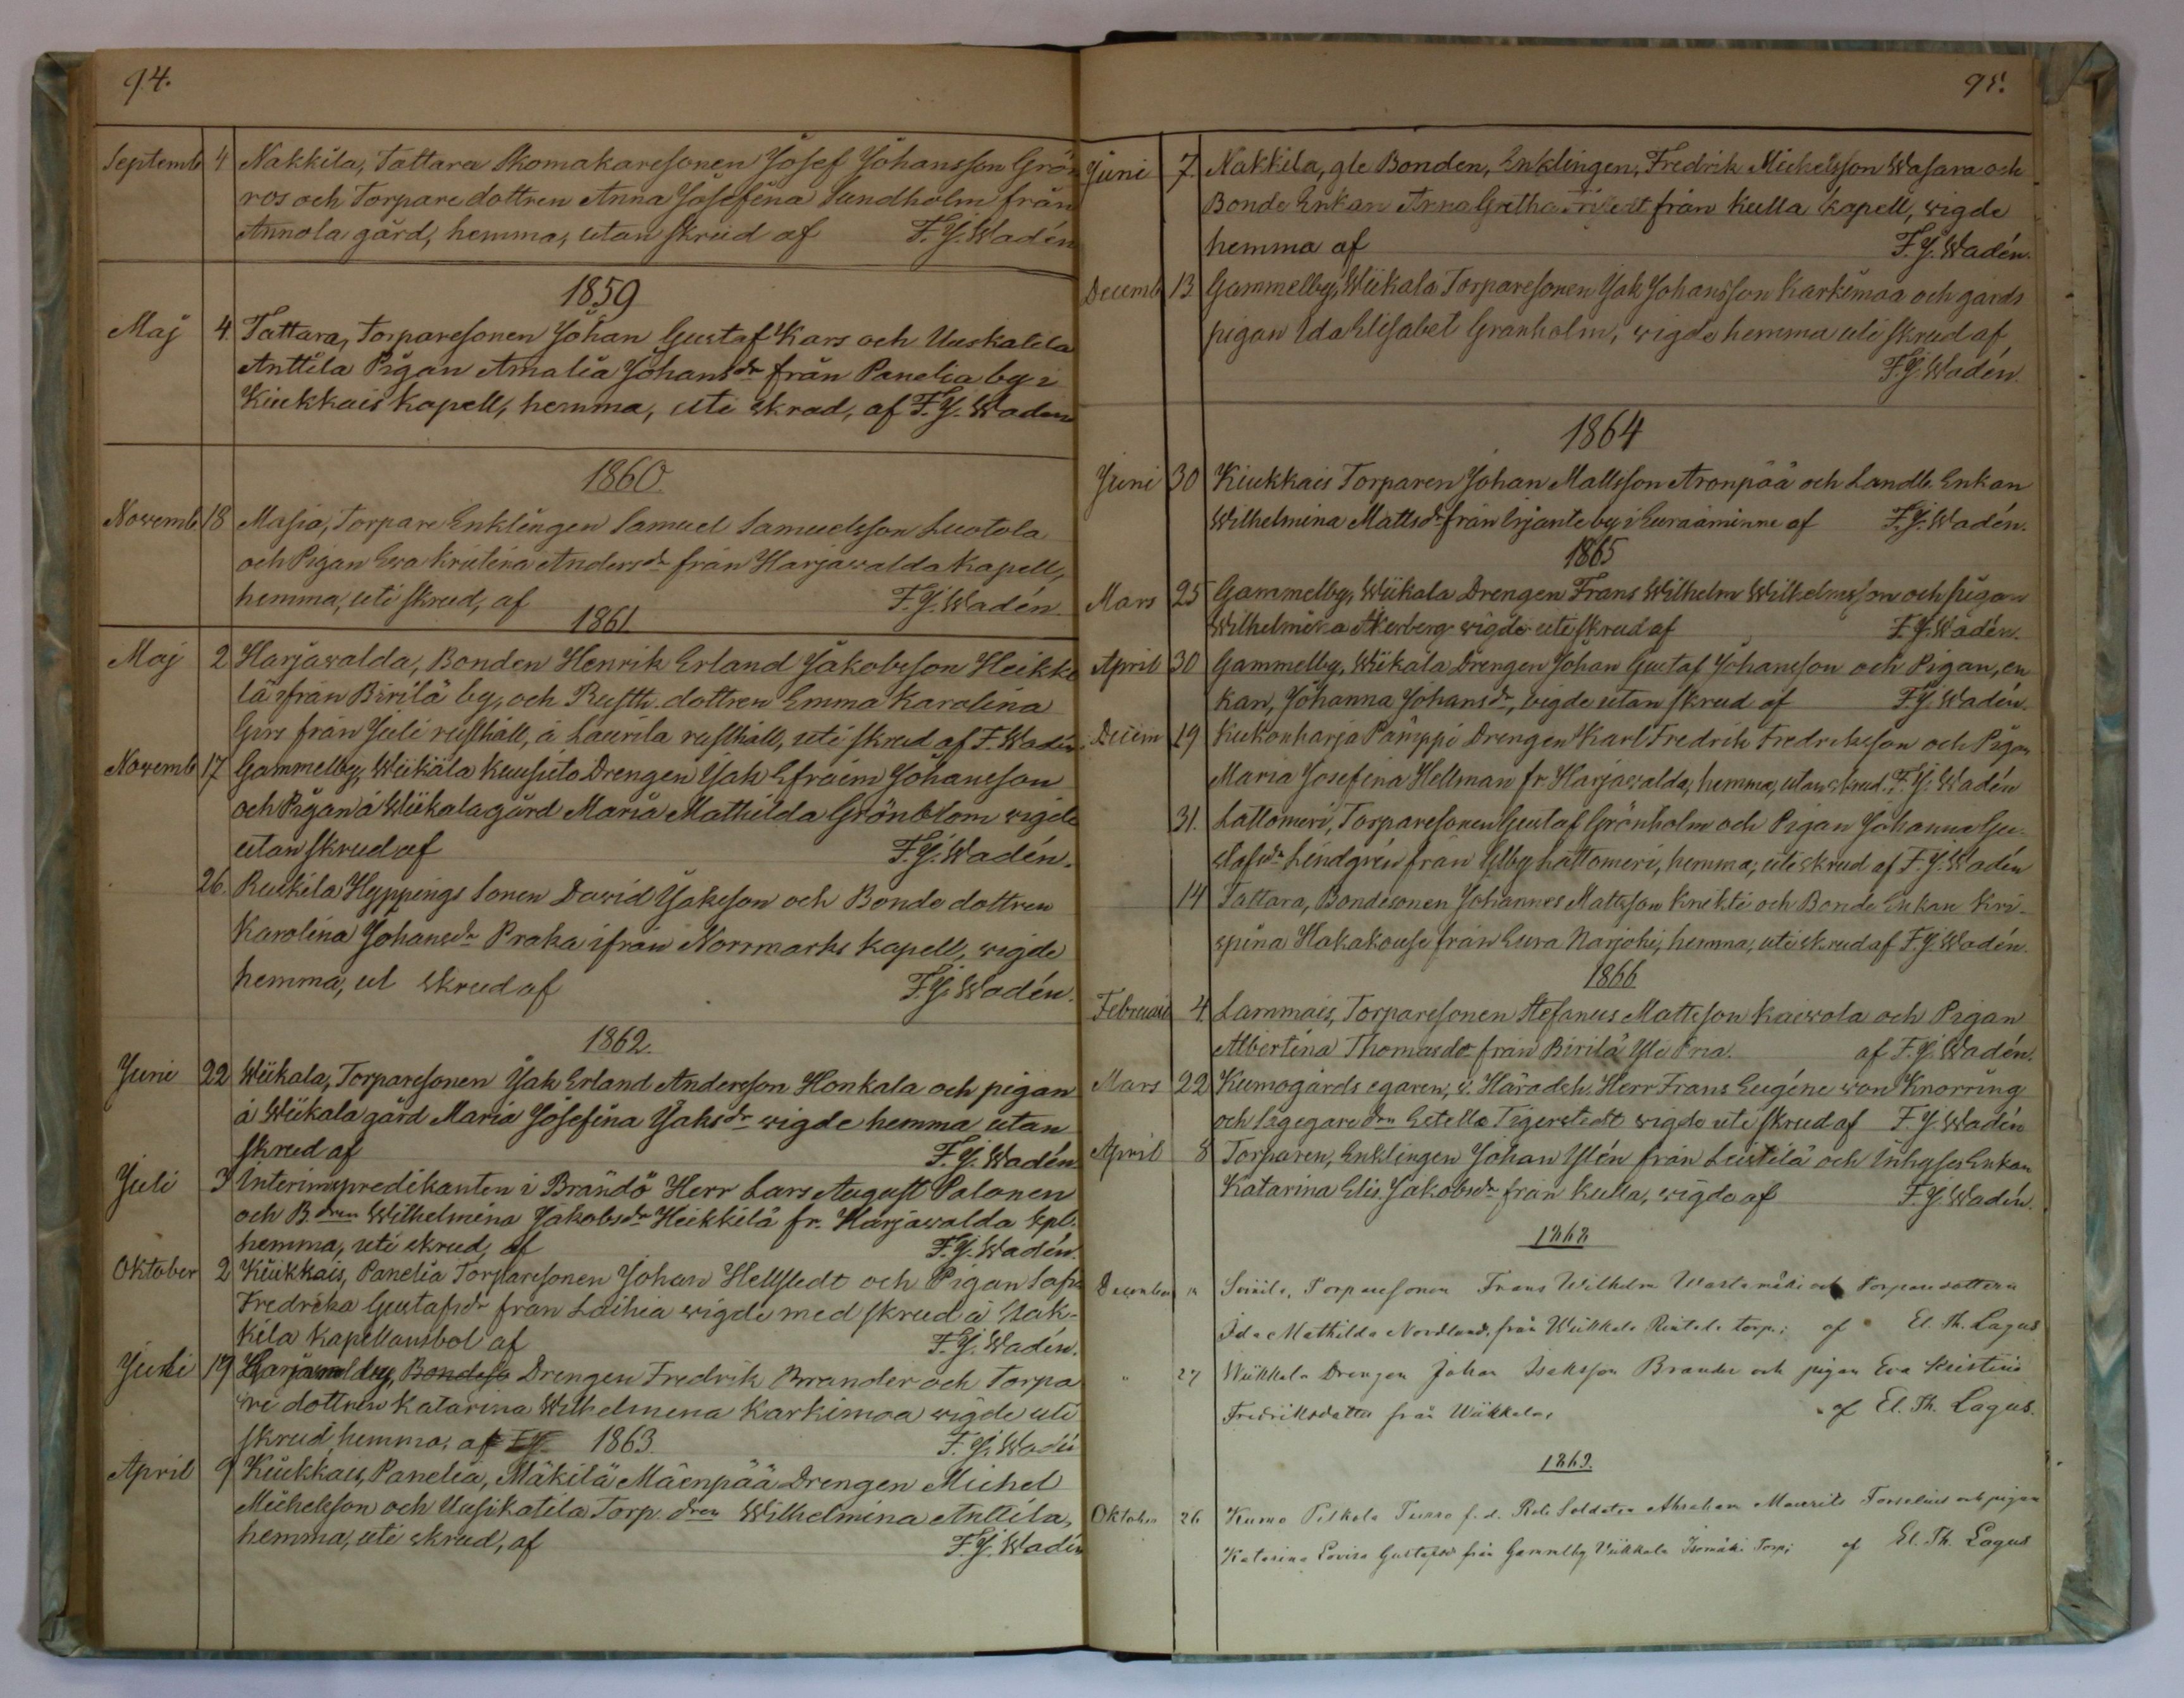 94.
Septemb 4 Nakkila, Tattara Skomakaresonen Josef Johansson Grön
ros och Torpare dottren Anna Josefina Sundholm från
Annola gård, hemma, utan skrud af F. J. Wadén
1859
Maj 4. Tattara, Torparesonen Johan Gustaf Kars och Uuskalila
Anttila Pigan Amalia Johansdr från Panelia by i
Kiukkais kapell, hemma, uti skrud, af F. J. Wadén
1860
Novemb 18 Masia, Torpare Enklingen Samuel Samuelsson Luotola
och Pigan Eva Kristina Andersdr från Harjavalda Kapell,
hemma, uti skrud, af F. J. Wadén
1861
Maj 2 Harjavalda, Bonden Henrik Erland Jakobsson Heikki
lä från Birilä by, och Rusth. dottren Emma Karolina
Gers från Juli rusthåll, å Laurila rusthåll, uti skrud af F. Wadén
Novemb 17 Gammelby, Wiikala Kuusisto Drengen Isak Efraim Johansson
och Pigan å Wiikala gård Maria Mathilda Grönblom vigde
utan skrud af F. J. Wadén.
26. Ruskila Hyppings Sonen David Isaksson och Bonde dottren
Karolina Johansdr Praka ifrån Norrmarks kapell, vigde
hemma, ut skrud af F. J. Wadén.
1862.
Juni 22 Wiikala, Torparesonen Isak Erland Andersson Honkala och pigan
å Wiikala gård Maria Josefina Isaksdr vigde hemma utan
skrud af F. J. Wadén
Juli 3 Interimspredikanten i Brändö Herr Lars August Palonen
och B. dren Wilhelmina Jakobsdr Heikkilä fr. Harjavalda kpl.
hemma, uti skrud, af F. J. Wadén.
Oktober 2 Kiukkais, Panelia Torparesonen Johan Hellstedt och Pigan Sofia
Fredrika Gustafsdr från Laihia vigde med skrud å Nak-
kila kapellansbol af F. J. Wadén.
Juni 19 Bondeso Drengen Fredrik Brander och Torpa
re dottren Katarina Wilhelmina Karkimaa vigde uti
skrud, hemma, af 1863 F. J. Wadén
April 9 Kiukkais, Panelia, Mäkilä Mäenpää Drengen Michel
Michelsson och Uusikatila Torp. dren Wilhelmina Anttila,
hemma, uti skrud, af F. J. Wadén
95.
Juni 7. Nakkila, gle Bonden, Enklingen, Fredrik Mickelsson Wasara och
Bonde Enkan Anna Gretha från Kulla kapell, vigde
hemma af F. J. Wadén.
Decemb 13 Gammelby, Wiikala Torparesonen Isak Johansson Karkimaa och gårds
pigan Ida Elisabet Granholm, vigde hemma uti skrud af
F. J. Wadén.
1864
Juni 30 Kiukkais Torparen Johan Mattsson Aronpää och Landb. Enkan
Wilhelmina Mattsdr från Irjante by i Euraåminne af F. J. Wadén.
1865
Mars 25 Gammelby, Wiikala Drengen Frans Wilhelm Wilhelmsson och pigan
Wilhelmina Åkerberg vigde uti skrud af F. J. Wadén.
April 30 Gammelby, Wiikala, Drengen Johan Gustaf Johansson och Pigan, en
kan, Johanna Johansdr, vigde utan skrud af F. J. Wadén.
Decem 19 Kukonharja Pämppi Drengen Karl Fredrik Fredriksson och Pigan
Maria Josefina Hellman fr. Harjavalda, hemma, utan skrud. F. J. Wadén
31. Lattomeri, Torparesonen Gustaf Grönholm och Pigan Johanna Gu-
stafsdr Lindgrén från Ulfsby Lattomeri, hemma, uti skrud af F. J. Wadén
14 Tattara, Bondesonen Johannes Mattsson Knihti och Bonde Enkan Kri-
spina Hakakouse från Eura Narjoki, hemma, uti skrud af F. J. Wadén.
1866
Februari 4. Lammais, Torparesonen Stefanus Mattsson Kaivola och Pigan
Albertina Thomasdr från Birilä Yli Pria. af F. J. Wadén.
Mars 22 Kumogårds egaren, v. Häradsh. Herr Frans Eugéne von Knorring
och Sågegare drn Estella Tigerstedt vigde uti skrud af F. J. Wadén
April 8 Torparen, Enklingen Johan Ylén från Leistilä och Inhyses Enkan
Katarina Elis. Jakobsdr från Kulla, vigde af F. J. Wadén.
1868
December Soinila, Torparesonen Frans Wilhelm Wartamäki och Torparedottern
Ida Mathilda Nordlund, från Wiikkala Rintala torp; af El. Th. Lagus
" 27 Wiikkala Drengen Johan Isaksson Brander och pigan Eva Kristina
Fredriksdotter från Wiikkala, af El. Th. Lagus.
1869.
Oktober 26 Kumo Pitkala Turra f. d. Rote Soldaten Abraham Maurits Forselius och pigan
Katarina Lovisa Gustafsdr från Gammelby Wiikkala Isomäki Torp; af El. Th. Lagus